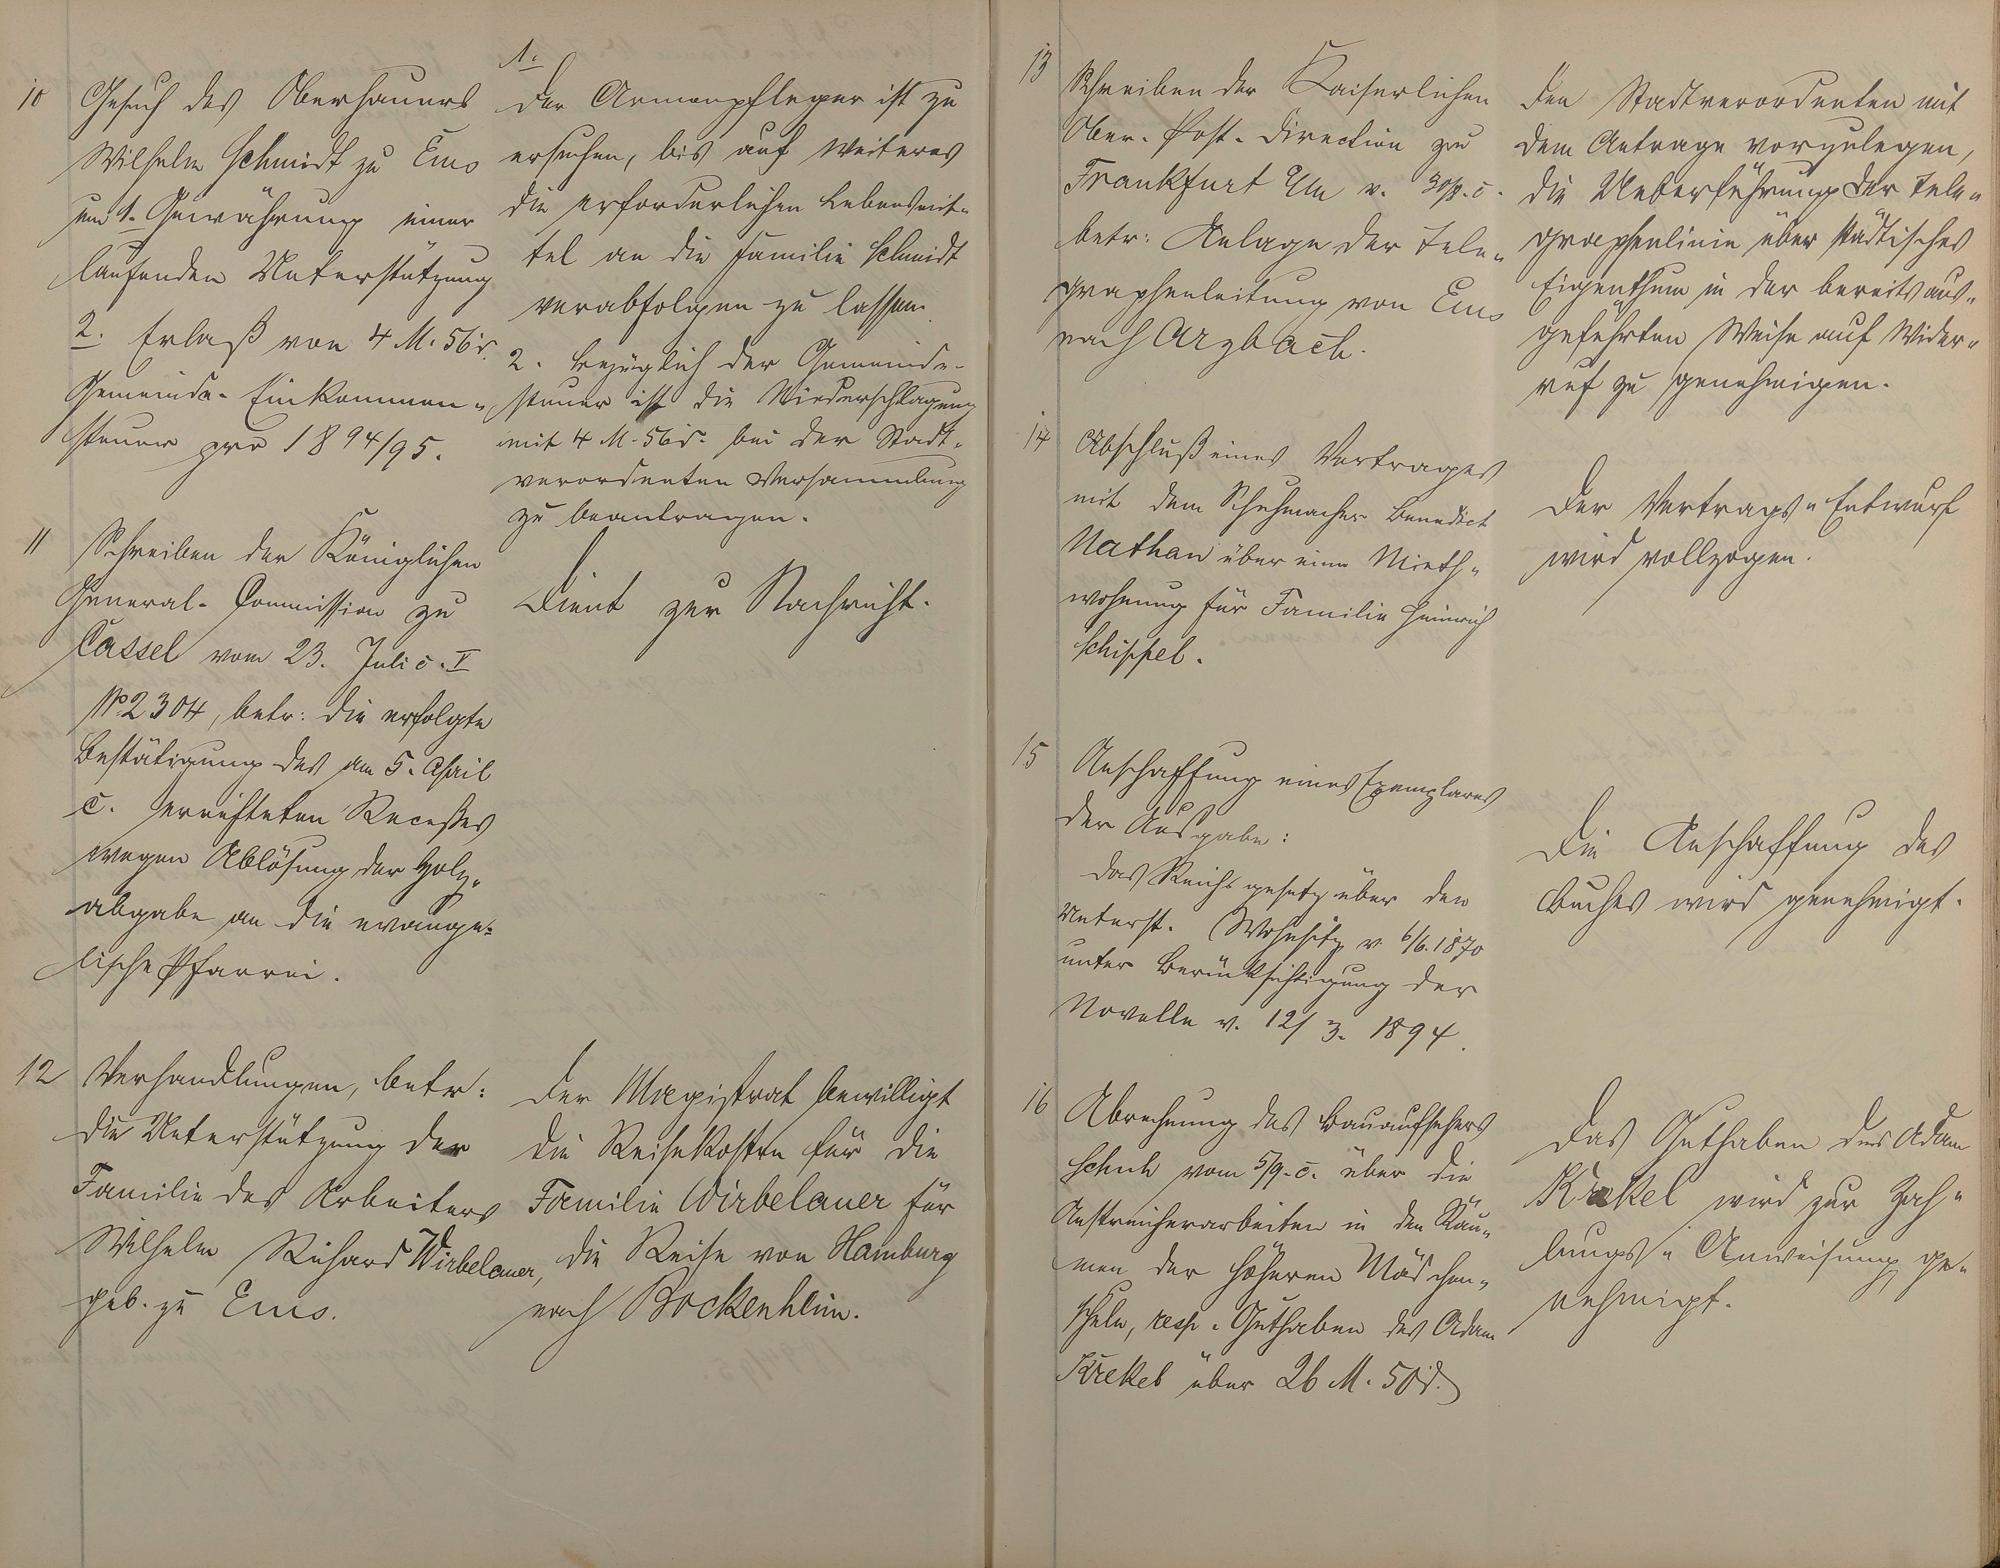 10
Gesuch des Oberhauers
Wilhelm Schmidt zu Ems
um 1. Gewährung einer
laufenden Unterstützung
2. Erlaß von 4 M. 56 ₰.
Gemeinde-Einkommen-
steuer pro 1894/95.
1.
Der Armenpfleger ist zu
ersuchen, bis auf Weiteres
die erforderlichen Lebensmit-
tel an die Familie Schmidt
verabfolgen zu lassen.
2. bezüglich der Gemeinde-
steuer ist die Niederschlagung
mit 4 M. 56 ₰. bei der Stadt-
verordneten Versammlung
zu beantragen.
11
Schreiben der Königlichen
General-Commission zu
Cassel vom 23. Juli c. I
No 2304, betr: die erfolgte
Bestätigung des am 5. April
c. errichteten Recesses
wegen Ablösung der Holz-
abgabe an die evange-
lische Pfarrei.
Dient zur Nachricht.
12
Verhandlungen, betr:
die Unterstützung der
Familie des Arbeiters
Wilhelm Richard Wirbelauer,
geb. zu Ems.
Der Magistrat bewilligt
die Reisekosten für die
Familie Wirbelauer für
die Reise von Hamburg
nach Bockenheim.
13
Schreiben der Kaiserlichen
Ober-Post-Direction zu
Frankfurt a/M v.
betr: Anlage der Tele-
graphenleitung von Ems
nach Arzbach.
Den Stadtverordneten mit
dem Antrage vorzulegen,
die Ueberführung der Tele-
graphenlinie über städtisches
Eigenthum in der bereits aus-
geführten Weise auf Wider-
ruf zu genehmigen.
14
Abschluß eines Vertrages
mit dem Schuhmacher Benedict
Nathan über eine Mieth-
wohnung für Familie Heinrich
Schippel.
Der Vertrags-Entwurf
wird vollzogen.
15
Anschaffung eines Exemplares
der Ausgabe:
das Reichsgesetz über den
Unterst. Wohnsitz v. 6/6. 1870
unter Berücksichtigung der
Novelle v. 12/3. 1894.
Die Anschaffung des
Buches wird genehmigt.
16
Abrechnung des Bauaufsehers
Schuh vom 5/9. c. über die
Anstreicherarbeiten in den Räu-
men der höheren Mädchen-
schule, resp. Guthaben des Adam
Krekel über 26 M. 50 ₰.
Das Guthaben des Adam
Krekel wird zur Zah-
lungs-Anweisung ge-
nehmigt.